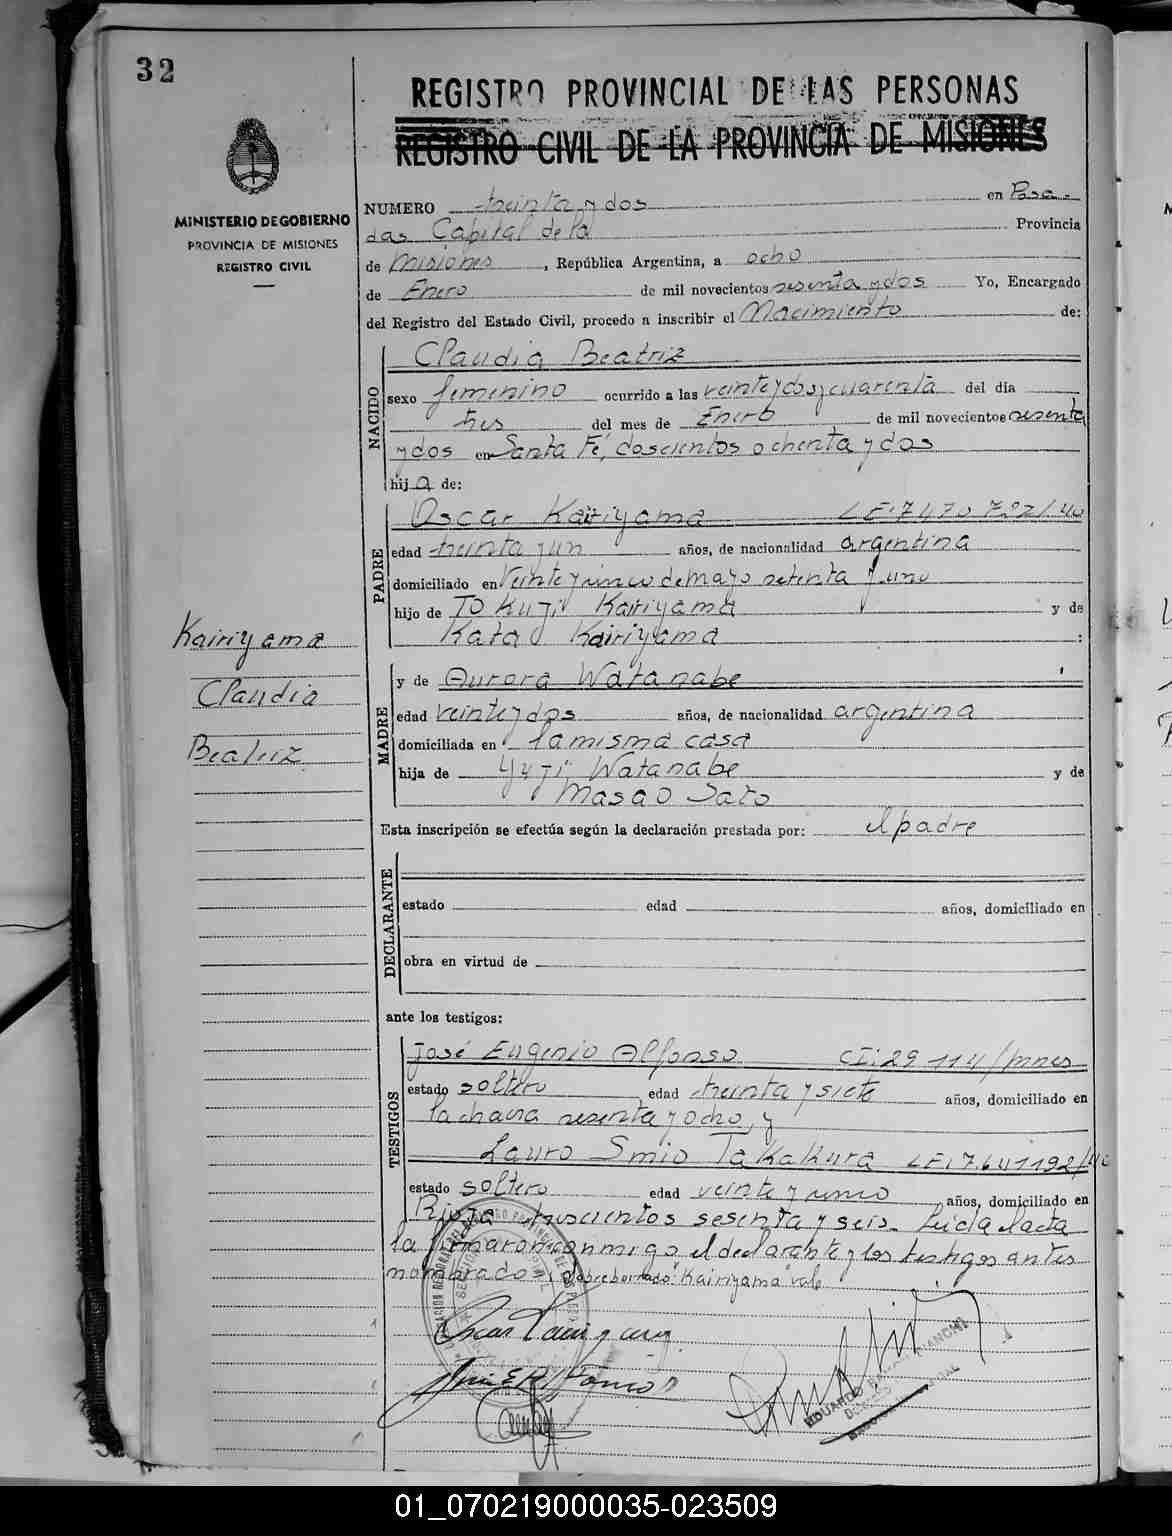 32
REGISTRO PROVINCIAL DE LAS PERSONAS
REGISTRO CIVIL DE LA PROVINCIA DE MISIONES
MINISTERIO DE GOBIERNO
PROVINCIA DE MISIONES
REGISTRO CIVIL
NUMERO treinta y dos en Posa-
das Capital de la Provincia
de Misiones, República Argentina, a ocho
de Enero de mil novecientos sesenta y dos Yo, Encargado
del Registro del Estado Civil, procedo a inscribir el Nacimiento de:
NACIDO
Claudia Beatriz
sexo femenino ocurrido a las veinte y dos y cuarenta del día
tres del mes de Enero de mil novecientos sesenta
y dos en Santa Fé, doscientos ochenta y dos
hija de:
PADRE
Oscar Kairiyama LE:7470722/40
edad treinta y un años, de nacionalidad argentina
domiciliado en Veinte y cinco de mayo setenta y uno
hijo de Tokuji Kairiyama y de
Kata Kairiyama :
Kairiyama
Claudia
Beatriz
MADRE
y de Aurora Watanabe
edad veinte y dos años, de nacionalidad argentina
domiciliada en la misma casa
hija de Yuji Watanabe y de
Masao Sato
Esta inscripción se efectúa según la declaración prestada por: el padre
DECLARANTE
estado edad años, domiciliado en
obra en virtud de
ante los testigos:
TESTIGOS
José Eugenio Alfonso CI:29 114/mnes
estado soltero, edad treinta y siete años, domiciliado en
la chacra sesenta y ocho, y
Lauro Smio Takakura LE:7.641192/40
estado soltero edad veinte y cinco años, domiciliado en
Rioja trescientos sesenta y seis. Leída el acta
la firmaron conmigo, el declarante y los testigos antes
nombrados. Sobreborrado: "Kairiyama" vale
Oscar Kairiyama
EDUARDO BIANCHI
01_070219000035-023509